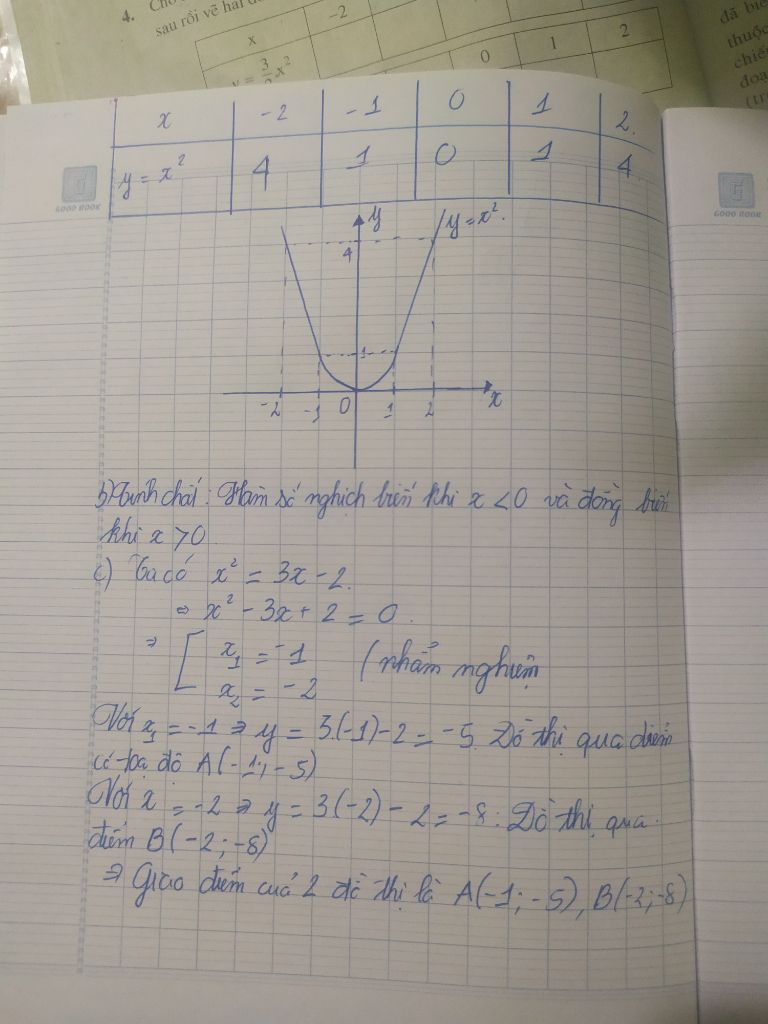 4.
sau rồi vẽ hai
x -2
0 1 2
đã biế
thuộc
chiế
đoạ
x -2 -1 0 1 2.
y = x² 4 1 0 1 4
GOOD BOOK
GOOD BOOK
y y = x².
4
1
-2 -1 0 1 2 x
b) Tính chất: Hàm số nghịch biến khi x < 0 và đồng biến
khi x > 0
c) Ta có x² = 3x - 2.
⇔ x² - 3x + 2 = 0.
⇒ [ x₁ = -1 (nhẩm nghiệm
x₂ = -2
Với x₁ = -1 ⇒ y = 3.(-1) - 2 = -5. Đồ thị qua điểm
có toạ độ A(-1; -5)
Với x = -2 ⇒ y = 3(-2) - 2 = -8: Đồ thị qua
điểm B(-2; -8)
⇒ Giao điểm cuả 2 đồ thị là A(-1; -5), B(-2; -8)